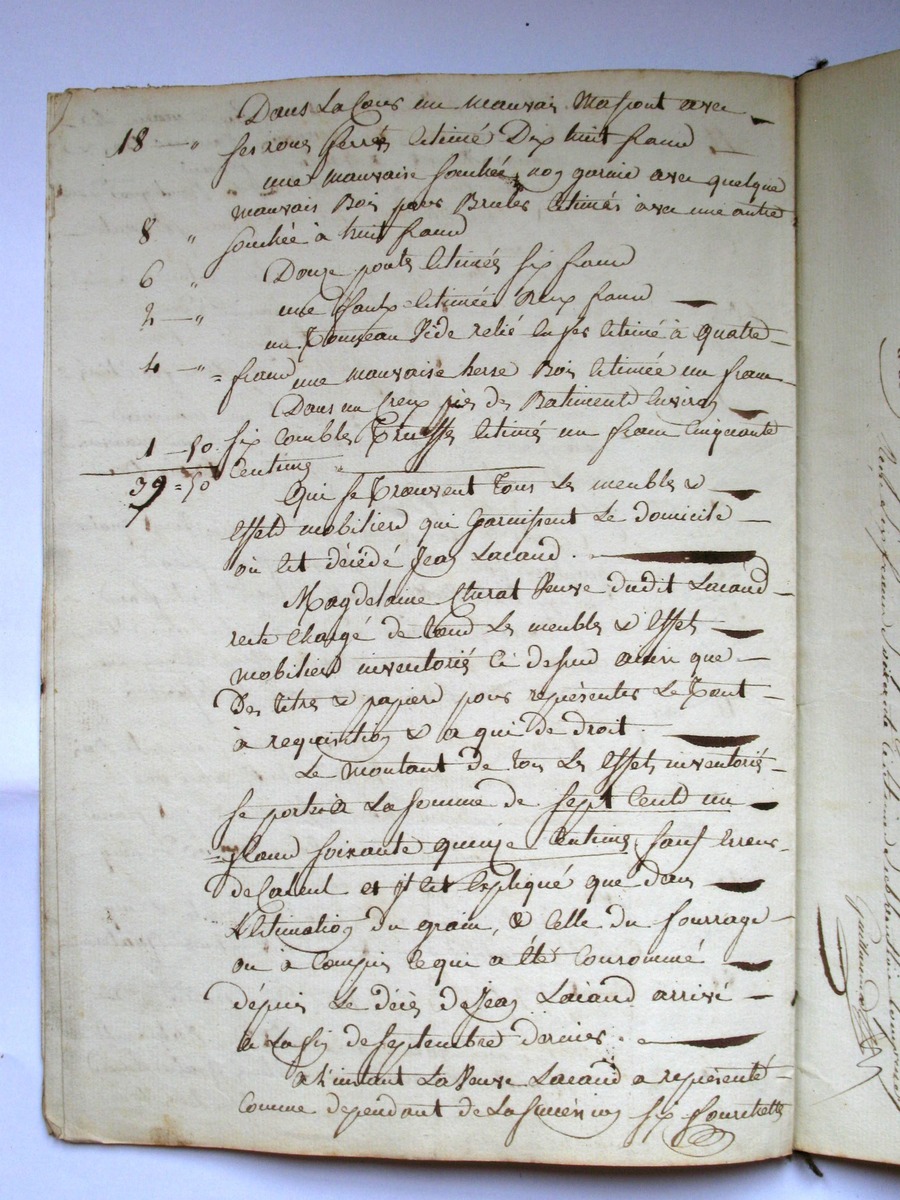 Dans La Cour un mauvais
18 — " ses roues ferrés Estimé Dix huit francs
une mauvaise non garnie avec quelque
mauvais Bois pour Bruler Estimés avec une autre
8 " à huit francs
6 " Douze Estimés six francs
2 — " une faux Estimée Deux francs
un Tonneau Vide relié en fer Estimé à quatre
4 — " = francs
une mauvaise herse Bois Estimée un franc
Dans un creux près des Batiments Environ
1 — 50 six combles Truffes Estimés un franc cinquante
39 = 50 Centimes "
Qui se Trouvent Tous Les meubles &
Effets mobiliers qui Garnissent Le domicile
où Est décédé Jean Lacaud .
Magdelaine Veuve dudit Lacaud
reste Chargé de Tous Les meubles & Effets
mobiliers inventoriés Ci dessus ainsi que
Des titres & papiers pour représenter Le Tout
à requisition & a qui de droit .
Le montant de Tous Les Effets inventoriés
se porte à La somme de sept Cents un
= franc soixante quinze Centimes, sauf Erreur
de Calcul et il Est Expliqué que dans
L'Estimation du grain, & Celle du fourrage
on à Compris ce qui a Eté Consommé
dépuis Le décès de Jean Lacaud arrivé
à La fin de septembre dernier .
à L'instant La Veuve Lacaud a représenté
Comme dependant de La succession six fourchettes